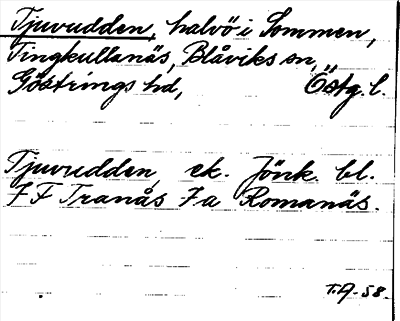 Tjuvudden, halvö i Sommen,
Tingkullanäs, Blåviks sn,
Göstrings hd, Östg. l.
Tjuvudden ek. Jönk. bl.
7 F Tranås 7a Romanäs.
T.A. 58.